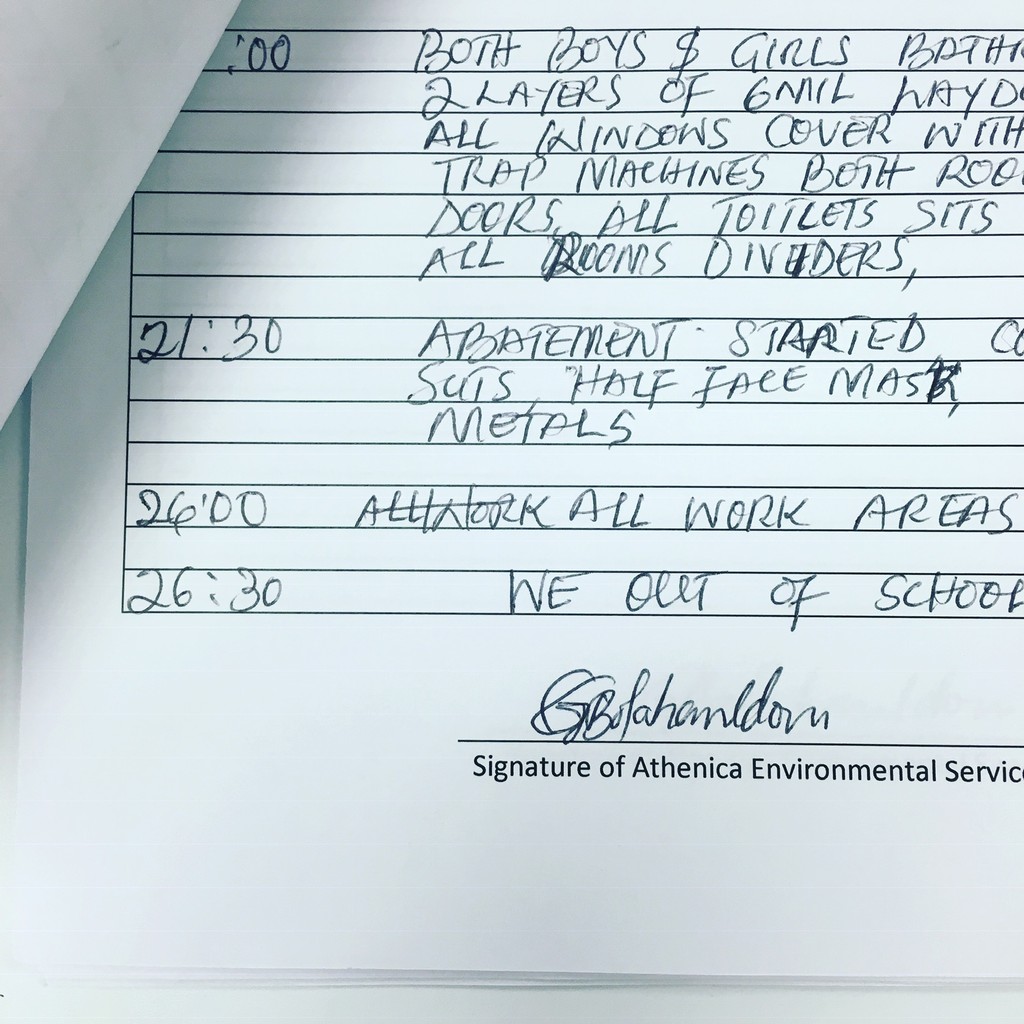 :00 BOTH BOYS & GIRLS BATHR
2 LAYERS OF 6MIL LAYDO
ALL WINDOWS COVER WITH
TRAP MACHINES BOTH ROO
DOORS, ALL TOITLETS SITS
ALL ROOMS DIVIDERS,
21:30 ABATEMENT STARTED CO
SUTS, HALF FACE MASK,
METALS
26:00 ALL WORK ALL WORK AREAS
26:30 WE OUT OF SCHOOL
Signature of Athenica Environmental Service